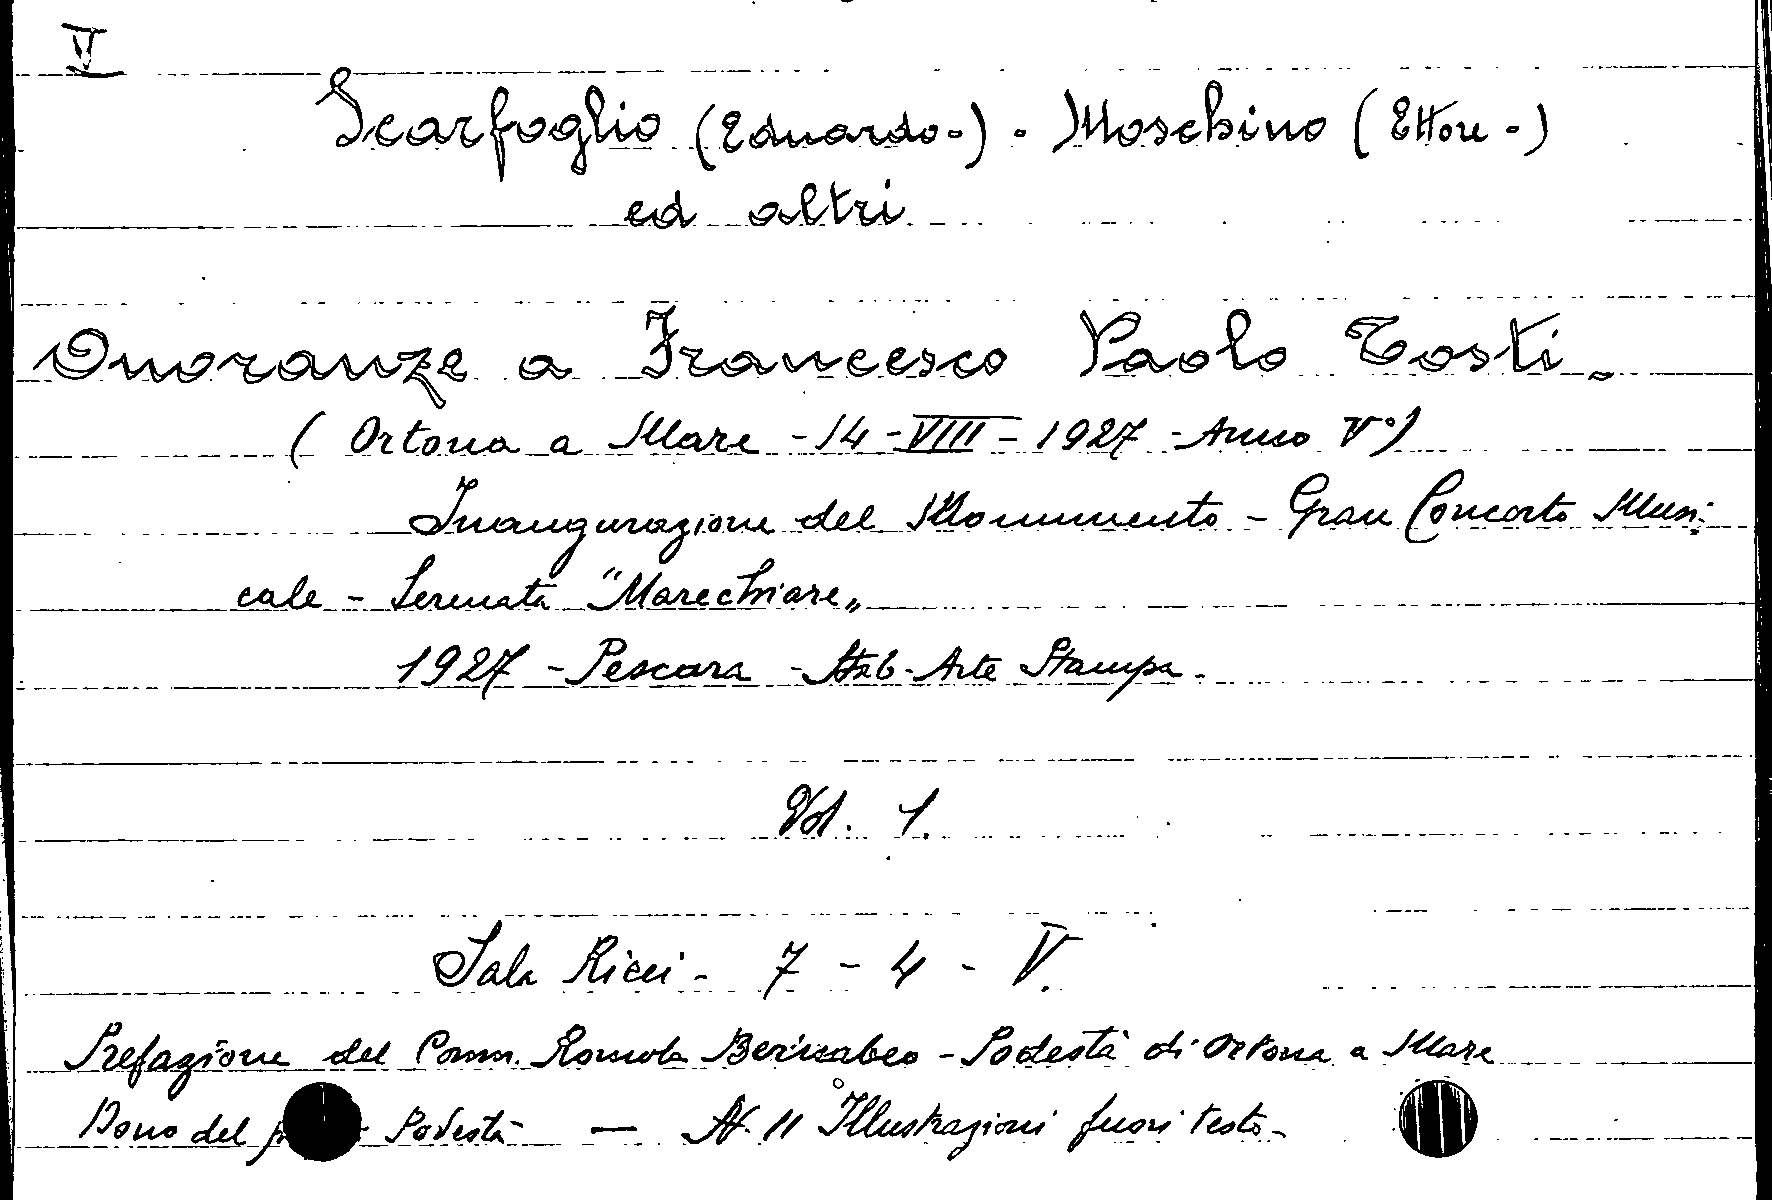 V
Scarfoglio (Eduardo-) - Moschino (Ettore -)
ed altri
Onoranze a Francesco Paolo Tosti -
( Ortona a Mare - 14 - VIII - 1927 - Anno V°)
Inaugurazione del Monumento - Gran Concerto Musi-
cale - Serenata "Marechiare„
1927 - Pescara - Stab. Arte Stampa.
Vol. 1.
Sala Ricci - 7 - 4 - V.
Prefazione del Comm. Bernabeo - Podestà di Ortona a Mare
Dono del Podestà — N. 11 Illustrazioni fuori testo -